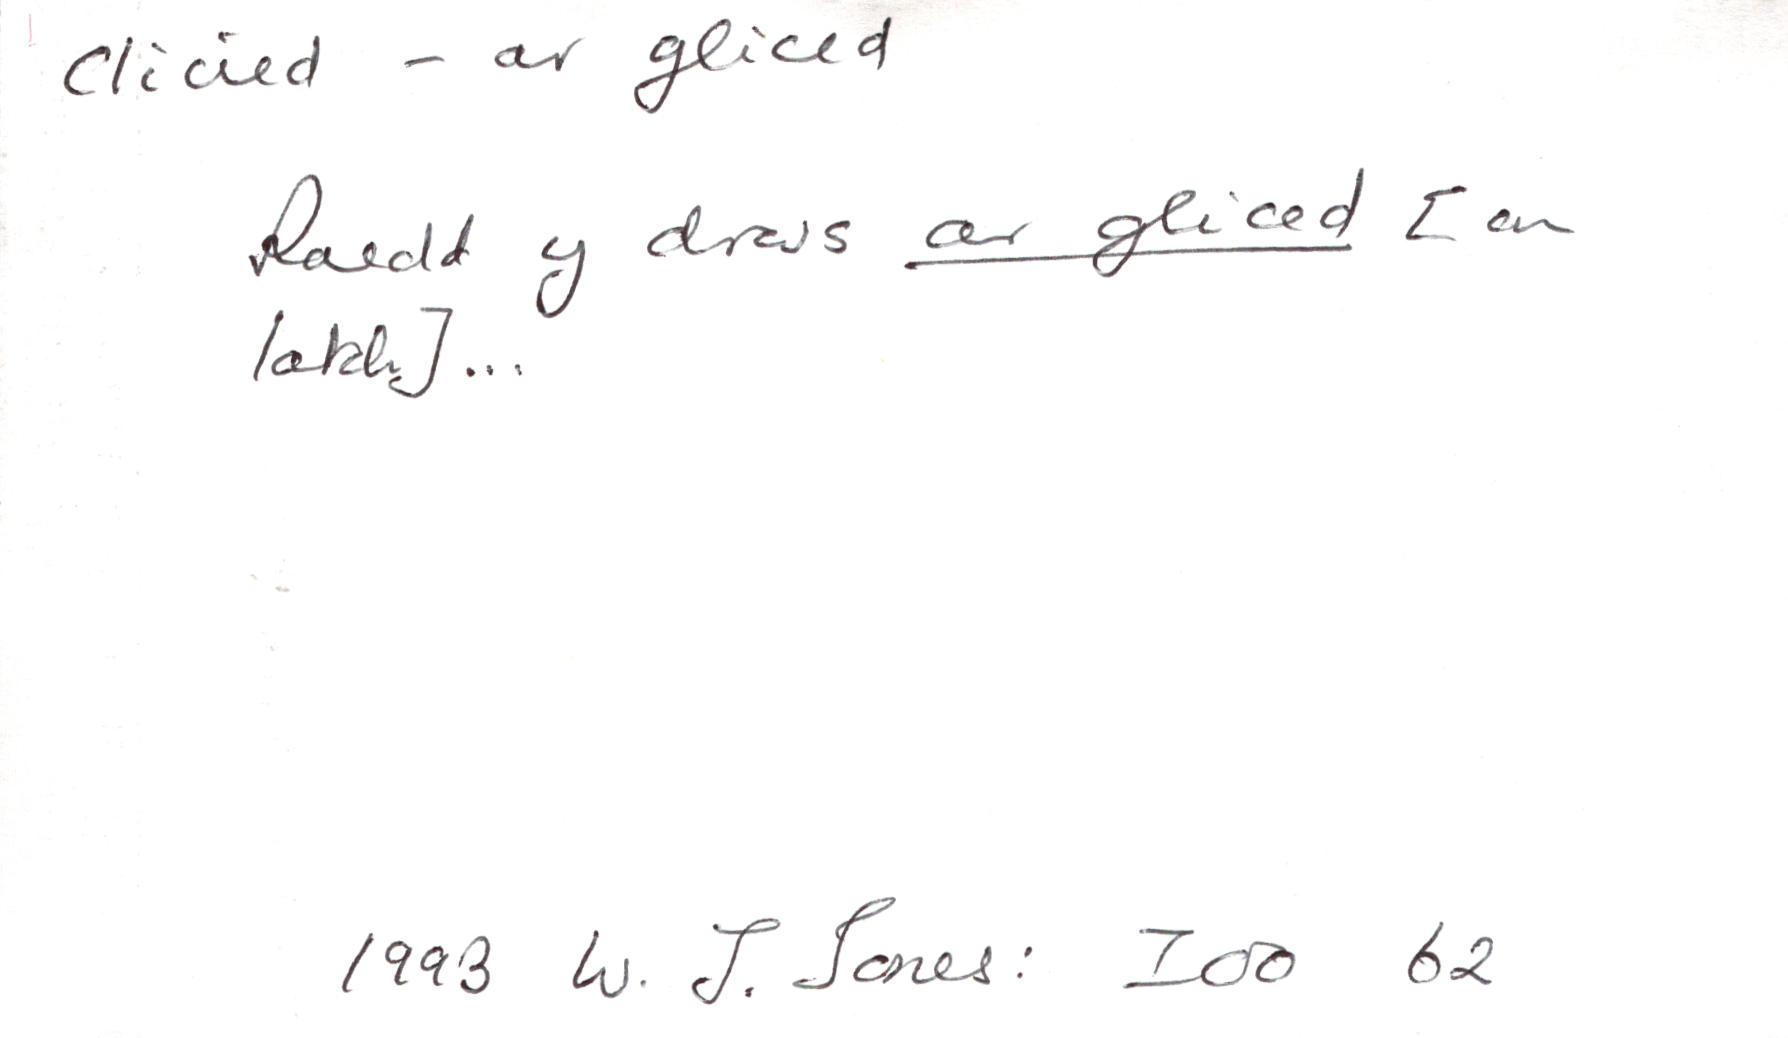 Clicied - ar gliced
Roedd y drws ar gliced [on
latch]...
1993 W. J. Jones: Ioo 62